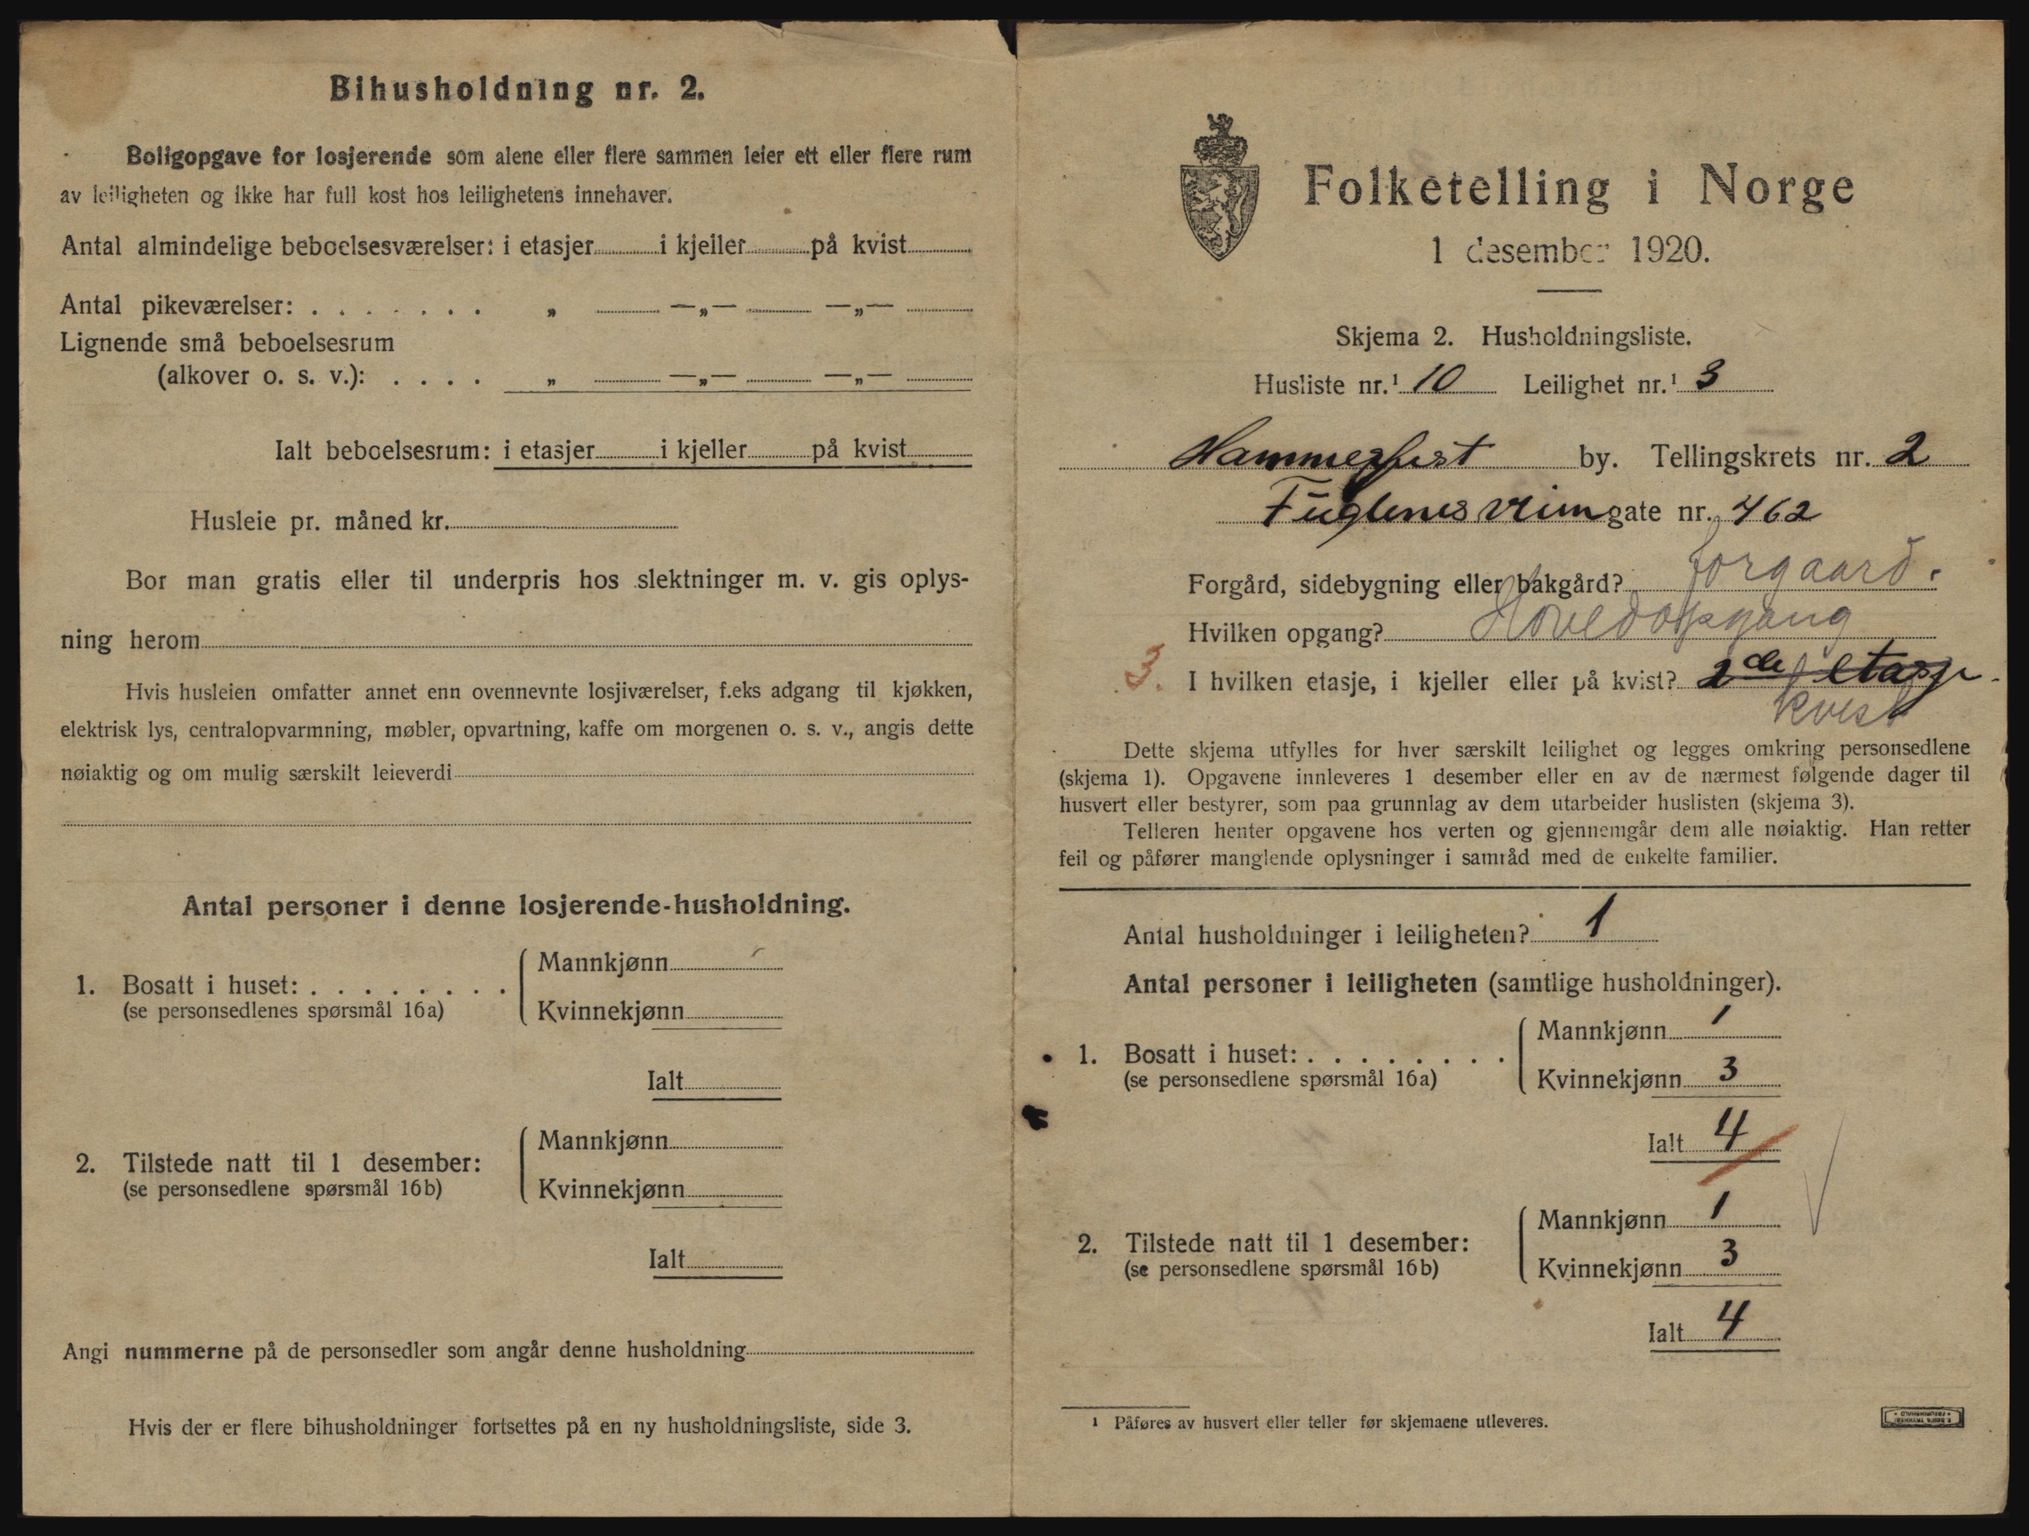 Bihusholdning nr. 2.
Boligopgave for losjerende som alene eller flere sammen leier ett eller flere rum
av leiligheten og ikke har full kost hos leilighetens innehaver.
Antal almindelige beboelsesværelser: i etasjer i kjeller på kvist
Antal pikeværelser: . . . . . . . „ —„— —„—
Lignende små beboelsesrum
(alkover o. s. v.): . . . . „ —„— —„—
Ialt beboelsesrum: i etasjer i kjeller på kvist
Husleie pr. måned kr.
Bor man gratis eller til underpris hos slektninger m. v. gis oplys-
ning herom
Hvis husleien omfatter annet enn ovennevnte losjiværelser, f.eks adgang til kjøkken,
elektrisk lys, centralopvarmning, møbler, opvartning, kaffe om morgenen o. s. v., angis dette
nøiaktig og om mulig særskilt leieverdi
Antal personer i denne losjerende-husholdning.
1. Bosatt i huset: . . . . . . . . Mannkjønn
(se personsedlenes spørsmål 16a) Kvinnekjønn
Ialt
2. Tilstede natt til 1 desember: Mannkjønn
(se personsedlene spørsmål 16b) Kvinnekjønn
Ialt
Angi nummerne på de personsedler som angår denne husholdning
Hvis der er flere bihusholdninger fortsettes på en ny husholdningsliste, side 3.
Folketelling i Norge
1 desember 1920.
Skjema 2. Husholdningsliste.
Husliste nr.¹ 10 Leilighet nr.¹ 3
Hammerfest by. Tellingskrets nr. 2
Fuglenesveien gate nr. 462
Forgård, sidebygning eller bakgård? forgaard.
Hvilken opgang? Hovedopgang
3. I hvilken etasje, i kjeller eller på kvist? 2de etasje
kvist
Dette skjema utfylles for hver særskilt leilighet og legges omkring personsedlene
(skjema 1). Opgavene innleveres 1 desember eller en av de nærmest følgende dager til
husvert eller bestyrer, som paa grunnlag av dem utarbeider huslisten (skjema 3).
Telleren henter opgavene hos verten og gjennemgår dem alle nøiaktig. Han retter
feil og påfører manglende oplysninger i samråd med de enkelte familier.
Antal husholdninger i leiligheten? 1
Antal personer i leiligheten (samtlige husholdninger).
1. Bosatt i huset: . . . . . . . . Mannkjønn 1
(se personsedlene spørsmål 16a) Kvinnekjønn 3
Ialt 4
2. Tilstede natt til 1 desember: Mannkjønn 1
(se personsedlene spørsmål 16b) Kvinnekjønn 3
Ialt 4
¹ Påføres av husvert eller teller før skjemaene utleveres.